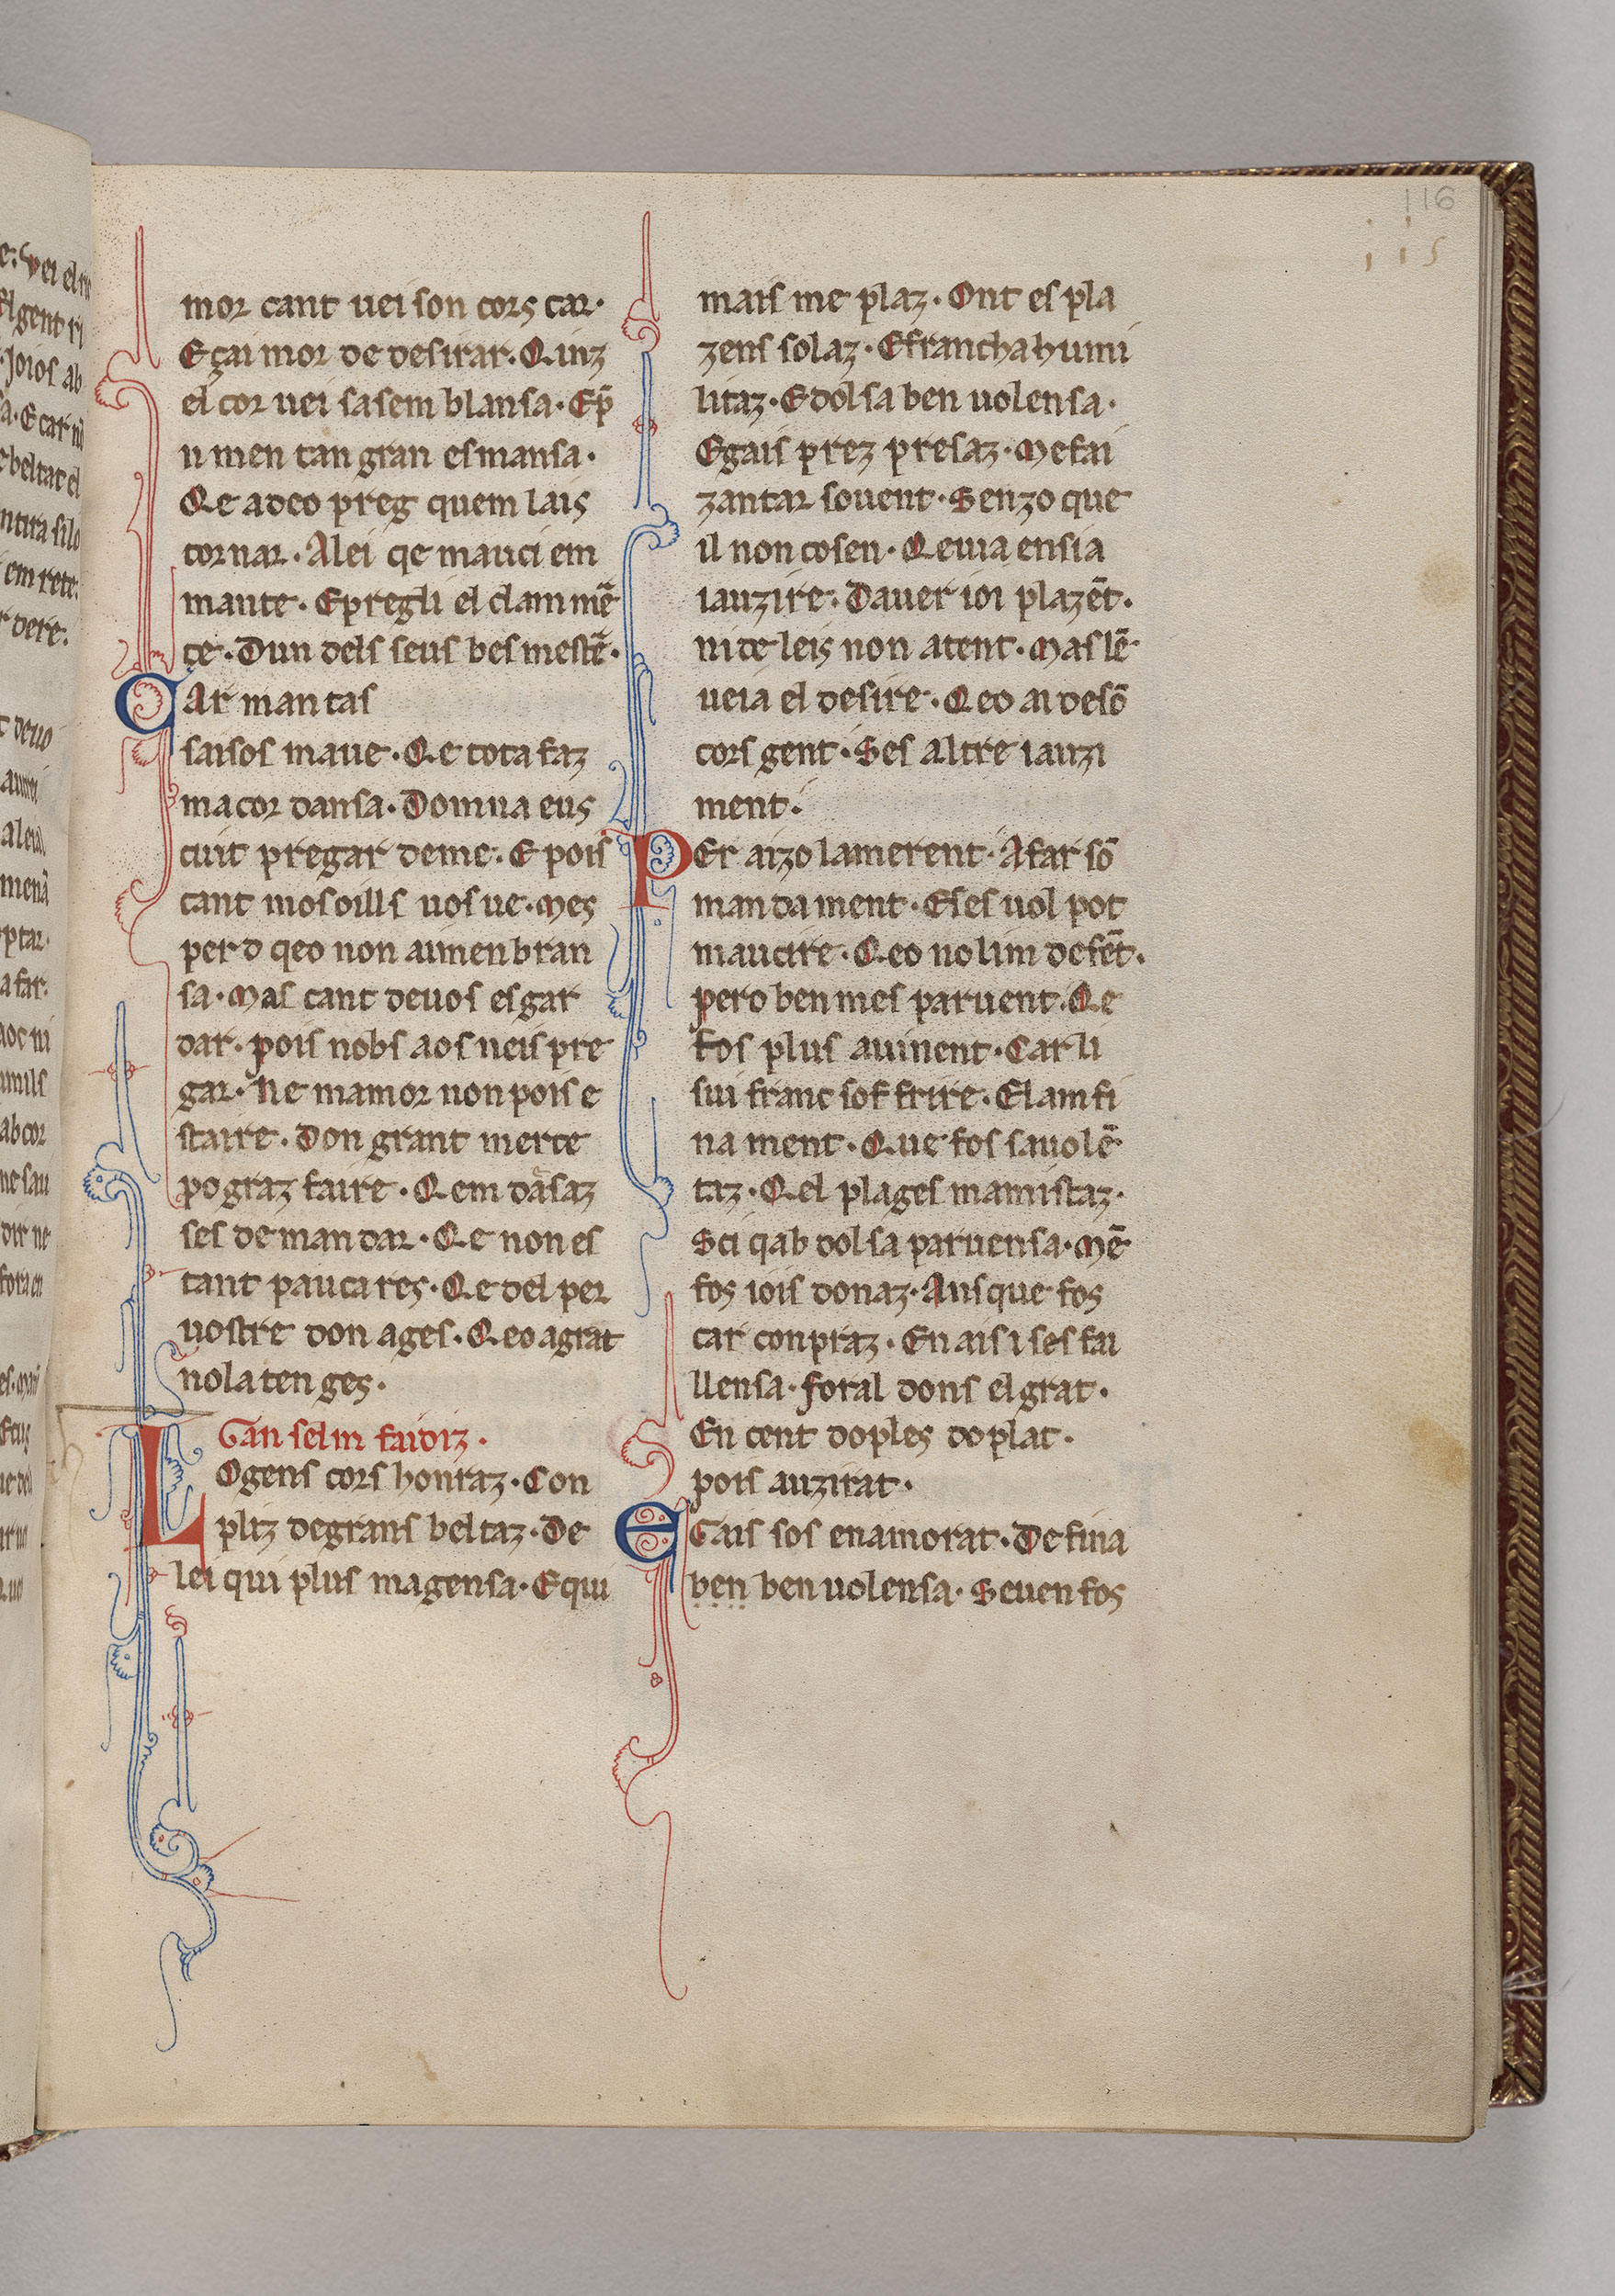 116
115
mor cant uei son cors car·
E çai mor de desirar. Qinz
el cor uei sa sem blansa· Ep̄
n men tan gran esmansa·
Qe a deo preg quem lais
tornar. A lei qe mauci em
mante. E pregli el clam mē
te. Dun dels seus bes mestē.
Car man tas
saisos maue. Qe tota faz
ma cor dansa. Domna eus
cuit pregar de me. E pois
cant mos oills uos ue. Mes
per o qeo non ai men bran
sa. Mas cant de uos esgar
dar. pois nobs aos neis pre
gar. Ne mamor non pois e
staire. Don grant merce
pograz faire. Qem dāsaz
ses deman dar. Qe non es
tant pauca res. Qe del per
uostre don ages. Qeo a grat
no la ten ges.
Gan selm faidiz.
LOgens cors honraz. Con
pliz de grans beltaz. De
lei qui plus magensa. E qui
mais me plaz. Ont es pla
zens solaz. E francha humi
litaz. E dolsa ben uolensa.
E gais prez presaz. Me fai
zantar souent. Senzo que
il non cosen. Qeuia en sia
iauzire. Dauer ioi plazēt.
ni de leis non atent. Mas lē
ueia el desire. Qeo ai de sō
cors gent. Ses altre iauzi
ment.
PEr aizo lamerent. A far sō
mandament. E ses uol pot
maucire. Qeo nolim defēt.
pero ben mes paruent. Qe
fos plus auinent. Car li
sui franc sof frire. El am fi
na ment. Que fos sa uolē
taz. Qel plages mamistaz.
Sci qab dolsa paruensa. Mē
fos iois donaz. Ans que fos
car conpraz. En aisi ses fai
llensa. foral dons el grat.
En cent doples doplat.
pois auzirat.
EGais sos enamorat. De fina
ben ben uolensa. Seuen fos